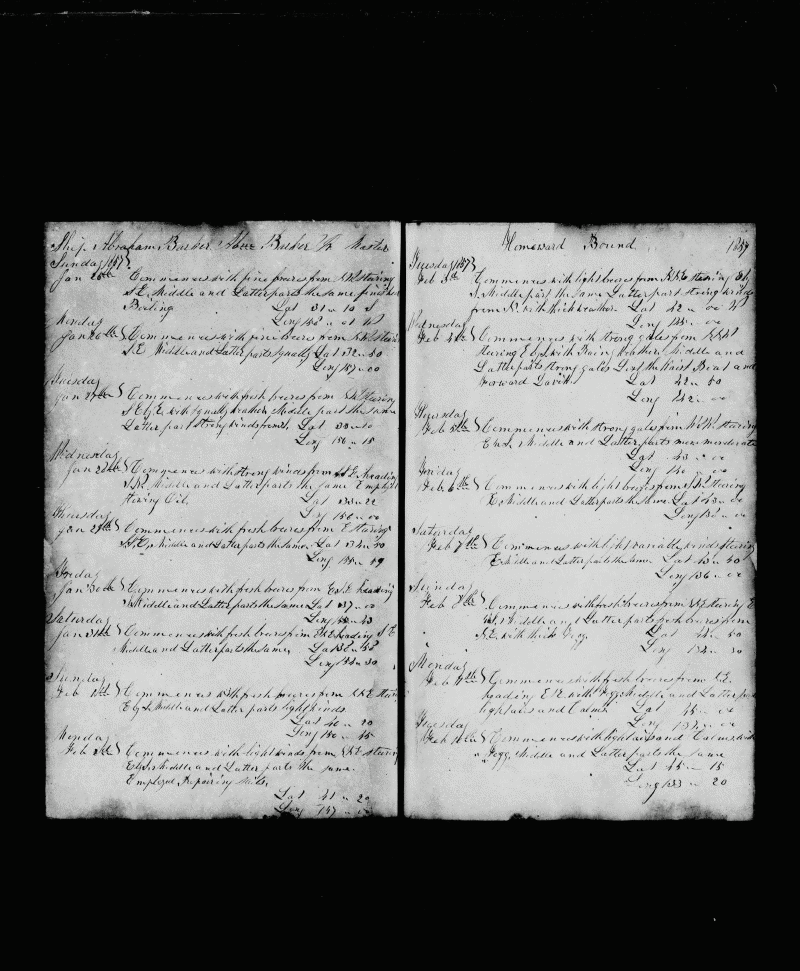 Ship Abraham Barker Abner Barker Jr Master
Sunday 1857
Jan 25th Commences with fine breeses from NW stearing
S E Middle and Latter parts the same finished
Boiling Lat 31 10 S
Long 158 W
Monday
Jan 26th Commences with fine breeses from NW stearing
S.E Middle and Latter parts squally Lat 32 50
Long 157 00
Tuesday
Jan 27th Commences with fresh breeses from Stearing
S E by E with squally weather Middle part the same
Latter part strong winds from Lat 33 10
Long 156 15
Wednesday
Jan 28th Commences with strong winds from S E heading
Middle and Latter parts the same Employed
Stowing Oil, Lat 33 22
Long 156 00
Thursday
Jan 29th Commences with fresh breeses from E Stearing
Middle and Latter parts the same Lat 34 50
Long 155 59
Friday
Jan 30th Commences with fresh breeses from heading
Middle and Latter parts the same Lat 37 00
Long 155 43
Saturday
Jan 31st Commences with fresh breeses from heading S E
Middle and Latter parts the same, Lat 38 58
Long 154 30
Sunday
Feb 1st Commences with fresh breeses from Stearing
E by S Middle and Latter parts light winds
Lat 40 20
Long 150 45
Monday
Feb 2d Commences with light winds from stearing
E by S Middle and Latter parts the same
Employed Repairing Sails
Lat 41 20
Long 147 00
Homeward Bound 1857
Tuesday 1857
Feb 3d Commences with light breeses from stearing E by
S. Middle part the same Latter part strong winds
from N. with thick weather Lat 42 00
Long 145 00
Wednesday
Feb 4th Commences with strong gales from
Stearing E by S with Rainy weather Middle and
Latter parts strong gales Lost the Waist Boat and
Forward Davit Lat 42 50
Long 142 00
Thursday
Feb 5th Commences with strong gales from stearing
Middle and Latter parts more moderate
Lat 43 00
Long 140 00
Friday
Feb 6th Commences with light breeses from Stearing
E, Middle and Latter parts the same Lat 43 00
Long 00
Saturday
Feb 7th Commences with light variable winds stearing
E Middle and Latter parts the same Lat 43 50
Long 136 00
Sunday
Feb 8th Commences with fresh breeses from stearing E
Middle and Latter parts fresh breeses from
N.E. with thick Fogg. Lat 44 50
Long 134 30
Monday
Feb 9th Commences with fresh breeses from
heading with Fogg Middle and Latter parts
light airs and Calms Lat 45 00
Long 00
Tuesday
Feb 10th Commences with light airs and Calms, with
Fogg Middle and Latter parts the same
Lat 45 15
Long 133 20